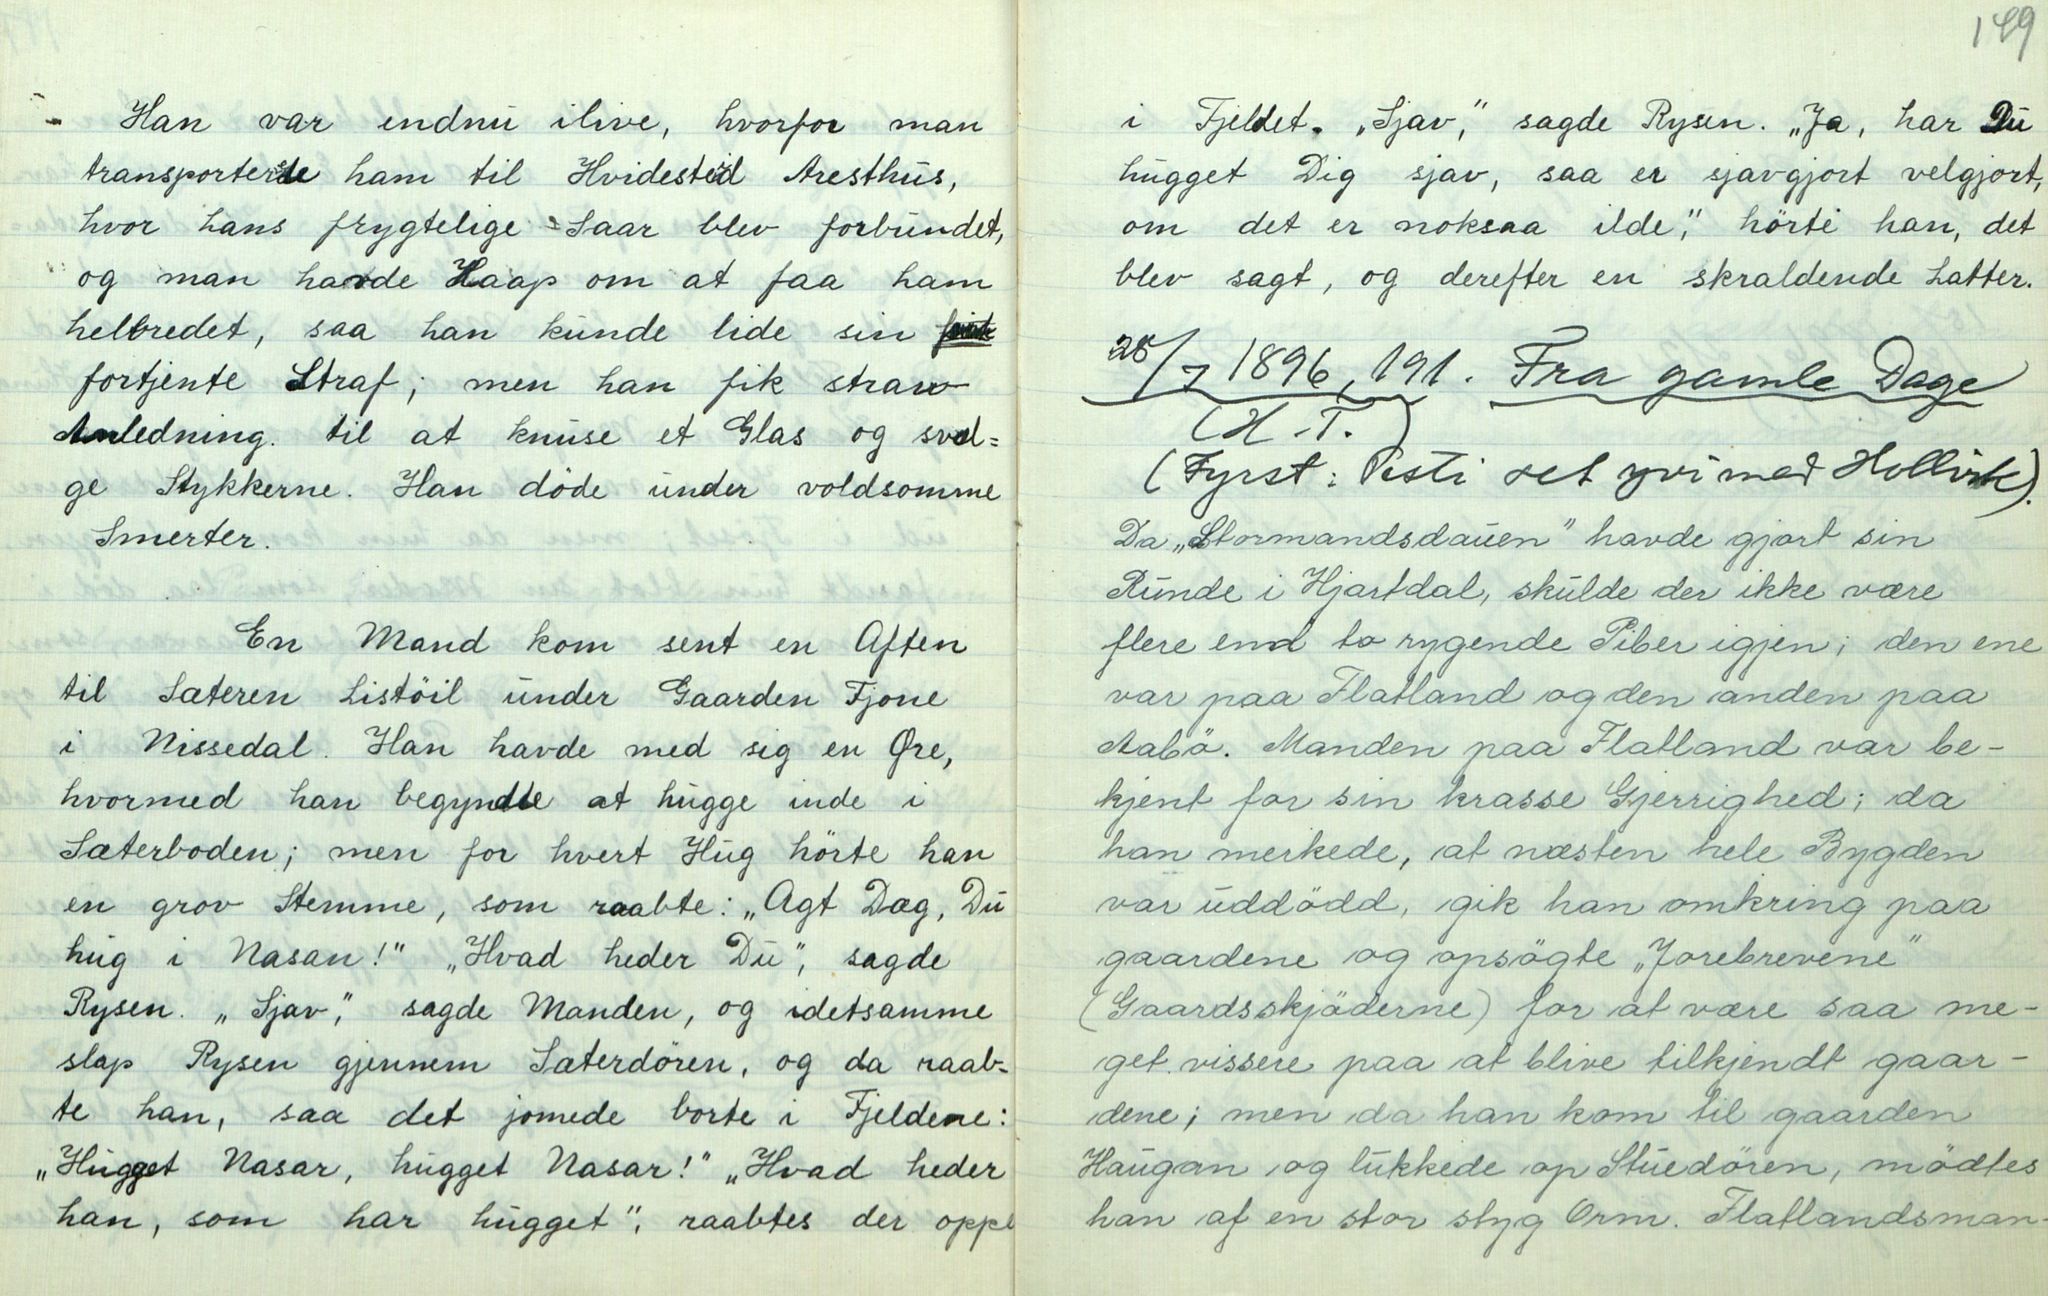 Han var endnu ilive, hvorfor man
transporterte ham til Hvidested Aresthus,
hvor hans frygtelige Saar blev forbundet,
og man havde Haap om at faa ham
helbredet, saa han kunde lide sin
fortjente Straf; men han fik straw
Anledning. til at knuse et Glas og svæl=
ge Stykkerne. Han döde under voldsomme
Smerter.
En Mand kom sent en Aften
til Sæteren Listöil under Gaarden Fjone
i Nissedal. Han havde med sig en Øxe,
hvormed han begyndte at hugge inde i
Sæterboden; men for hvert Hug hörte han
en grov Stemme, som raabte: „Agt Dæg, Du
hug i Nasan!" „Hvad heder Du", sagde
Rysen. „Sjav", sagde Manden, og idetsamme
slap Rysen gjennem Sæterdören, og da raab=
te han, saa det jomede borte i Fjeldene:
„Hugget Nasar, hugget Nasar!" „Hvad heder
han, som har hugget", raabtes der oppe
149
i Fjeldet. „Sjav", sagde Rysen. „Ja, har Du
hugget Dig sjav, saa er sjavgjort velgjort,
om det er noksaa ilde", hörte han, det
blev sagt, og derefter en skraldende Latter.
28/7 1896, 191. Fra gamle Dage
(H. T.)
(Fyrst: Pesti set yvi med Hollvik).
Da „Stormandsdauen" havde gjort sin
Runde i Hjartdal, skulde der ikke være
flere end to rygende Piber igjen; den ene
var paa Flatland og den anden paa
Aabö. Manden paa Flatland var be-
kjent for sin krasse Gjerrighed; da
han merkede, at næsten hele Bygden
var uddödd, gik han omkring paa
gaardene og opsögte „Jorebrevene"
(Gaardsskjöderne) for at være saa me-
get vissere paa at blive tilkjendt gaar-
dene; men da han kom til gaarden
Haugan og lukkede op Stuedören, mödtes
han af en stor styg Orm. Flatlandsman-